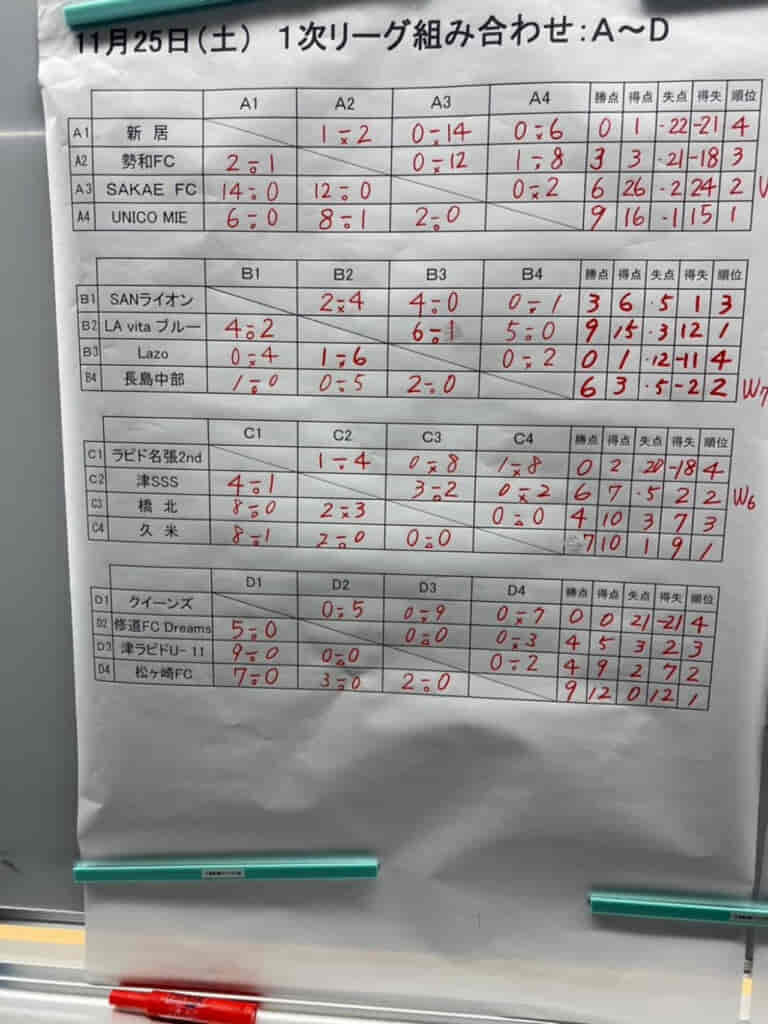 11月25日(土) 1次リーグ組み合わせ:A~D
A1 A2 A3 A4 勝点 得点 失点 得失 順位
A1 新居 1-2 0-14 0-6 0 1 -22 -21 4
A2 勢和FC 2-1 0-12 1-8 3 3 -21 -18 3
A3 SAKAE FC 14-0 12-0 0-2 6 26 -2 24 2
A4 UNICO MIE 6-0 8-1 2-0 9 16 -1 15 1
B1 B2 B3 B4 勝点 得点 失点 得失 順位
B1 SANライオン 2-4 4-0 0-1 3 6 -5 1 3
B2 LA vita ブルー 4-2 6-1 5-0 9 15 -3 12 1
B3 Lazo 0-4 1-6 0-2 0 1 -12 -11 4
B4 長島中部 1-0 0-5 2-0 6 3 -5 -2 2 W7
C1 C2 C3 C4 勝点 得点 失点 得失 順位
C1 ラピド名張2nd 1-4 0-8 1-8 0 2 20 -18 4
C2 津SSS 4-1 3-2 0-2 6 7 -5 2 2 W6
C3 橋北 8-0 2-3 0-0 4 10 3 7 3
C4 久米 8-1 2-0 0-0 7 10 1 9 1
D1 D2 D3 D4 勝点 得点 失点 得失 順位
D1 クイーンズ 0-5 0-9 0-7 0 0 21 -21 4
D2 修道FC Dreams 5-0 0-0 0-3 4 5 3 2 3
D3 津ラピドU-11 9-0 0-0 0-2 4 9 2 7 2
D4 松ヶ崎FC 7-0 3-0 2-0 9 12 0 12 1